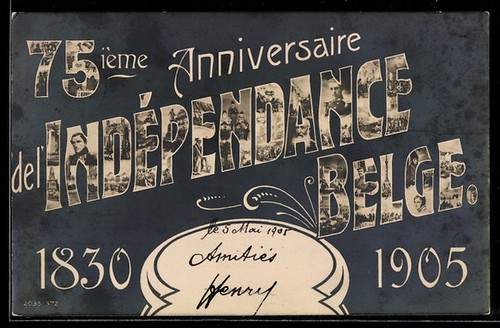 75ième Anniversaire
de l'INDÉPENDANCE
BELGE.
1830 1905
le 5 Mai 1905
Amitiés
Henry
2035/372